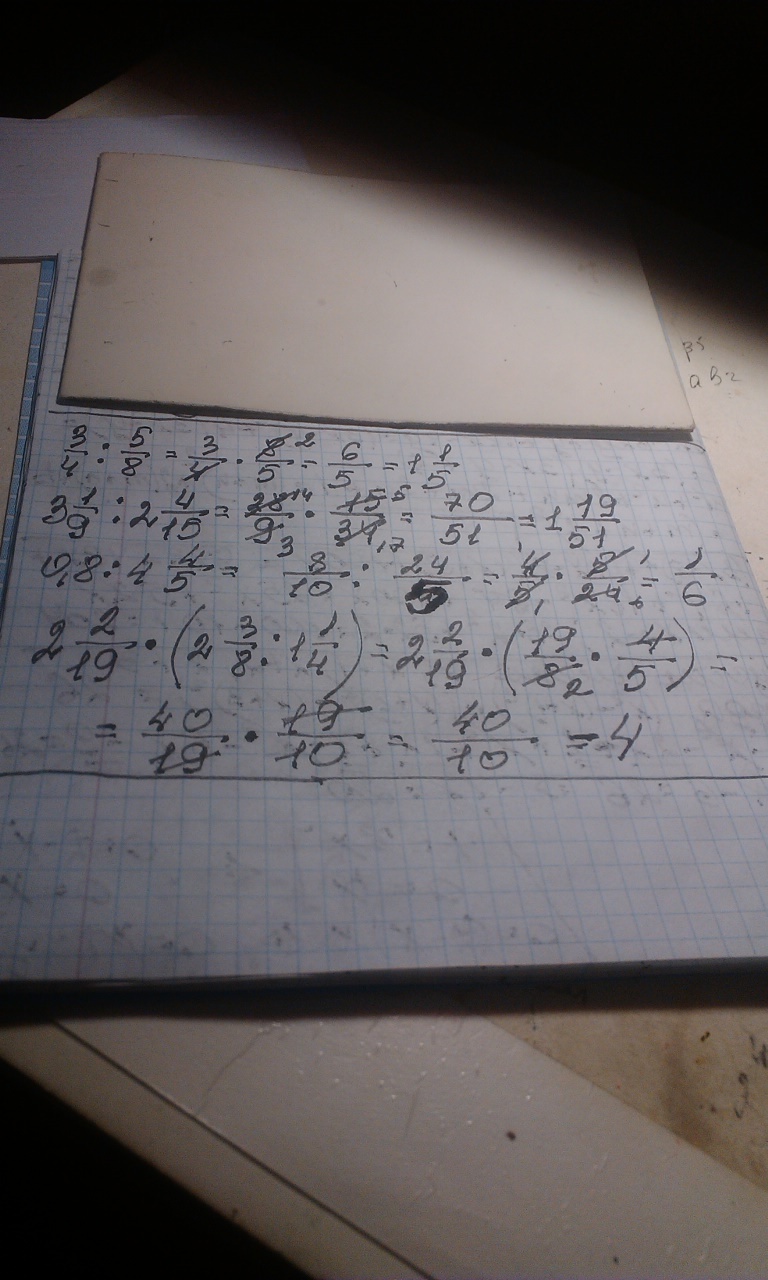 3/4 : 5/8 = 3/4 · 8/5 2 = 6/5 = 1 1/5
3 1/9 : 2 4/15 = 28 14/9 3 · 15 5/34 17 = 70/51 = 1 19/51
0,8 : 4 4/5 = 8/10 : 24/5 = 4 1/5 1 · 5 1/24 6 = 1/6
2 2/19 · (2 3/8 : 1 1/4) = 2 2/19 · (19/8 2 · 4/5) =
= 40/19 · 19/10 = 40/10 = 4